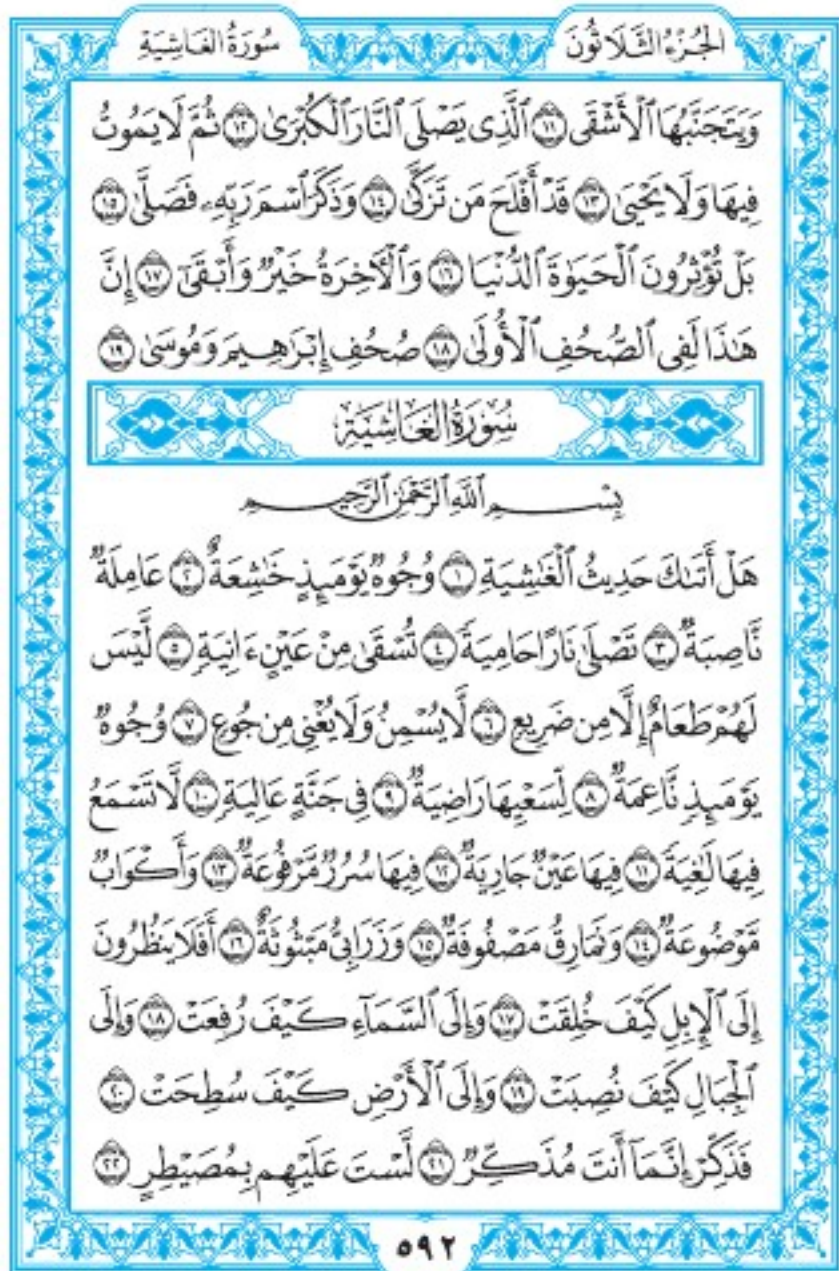 الجُزْءُ الثَّلَاثُونَ
سُورَةُ الغَاشِيَةِ
وَيَتَجَنَّبُهَا ٱلْأَشْقَى ١١ ٱلَّذِى يَصْلَى ٱلنَّارَ ٱلْكُبْرَىٰ ١٢ ثُمَّ لَا يَمُوتُ
فِيهَا وَلَا يَحْيَىٰ ١٣ قَدْ أَفْلَحَ مَن تَزَكَّىٰ ١٤ وَذَكَرَ ٱسْمَ رَبِّهِۦ فَصَلَّىٰ ١٥
بَلْ تُؤْثِرُونَ ٱلْحَيَوٰةَ ٱلدُّنْيَا ١٦ وَٱلْأٓخِرَةُ خَيْرٌ وَأَبْقَىٰٓ ١٧ إِنَّ
هَٰذَا لَفِى ٱلصُّحُفِ ٱلْأُولَىٰ ١٨ صُحُفِ إِبْرَٰهِيمَ وَمُوسَىٰ ١٩
سُورَةُ الغَاشِيَةِ
بِسْمِ ٱللَّهِ ٱلرَّحْمَٰنِ ٱلرَّحِيمِ
هَلْ أَتَىٰكَ حَدِيثُ ٱلْغَٰشِيَةِ ١ وُجُوهٌ يَوْمَئِذٍ خَٰشِعَةٌ ٢ عَامِلَةٌ
نَّاصِبَةٌ ٣ تَصْلَىٰ نَارًا حَامِيَةً ٤ تُسْقَىٰ مِنْ عَيْنٍ ءَانِيَةٍ ٥ لَّيْسَ
لَهُمْ طَعَامٌ إِلَّا مِن ضَرِيعٍ ٦ لَّا يُسْمِنُ وَلَا يُغْنِى مِن جُوعٍ ٧ وُجُوهٌ
يَوْمَئِذٍ نَّاعِمَةٌ ٨ لِّسَعْيِهَا رَاضِيَةٌ ٩ فِى جَنَّةٍ عَالِيَةٍ ١٠ لَّا تَسْمَعُ
فِيهَا لَٰغِيَةً ١١ فِيهَا عَيْنٌ جَارِيَةٌ ١٢ فِيهَا سُرُرٌ مَّرْفُوعَةٌ ١٣ وَأَكْوَابٌ
مَّوْضُوعَةٌ ١٤ وَنَمَارِقُ مَصْفُوفَةٌ ١٥ وَزَرَابِىُّ مَبْثُوثَةٌ ١٦ أَفَلَا يَنظُرُونَ
إِلَى ٱلْإِبِلِ كَيْفَ خُلِقَتْ ١٧ وَإِلَى ٱلسَّمَآءِ كَيْفَ رُفِعَتْ ١٨ وَإِلَى
ٱلْجِبَالِ كَيْفَ نُصِبَتْ ١٩ وَإِلَى ٱلْأَرْضِ كَيْفَ سُطِحَتْ ٢٠
فَذَكِّرْ إِنَّمَآ أَنتَ مُذَكِّرٌ ٢١ لَّسْتَ عَلَيْهِم بِمُصَيْطِرٍ ٢٢
٥٩٢